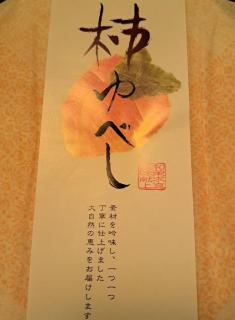 柿
ゆべし
素材を吟味し、一つ一つ
丁寧に仕上げました
大自然の恵みをお届けします